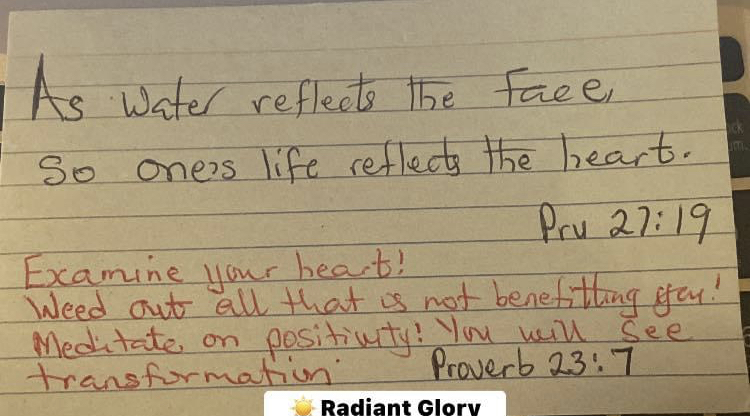 As water reflects the face,
So one's life reflects the heart.
Prv 27:19
Examine your heart!
Weed out all that is not benefitting you!
Meditate on positivity! You will see
transformation Proverb 23:7
☀️ Radiant Glory